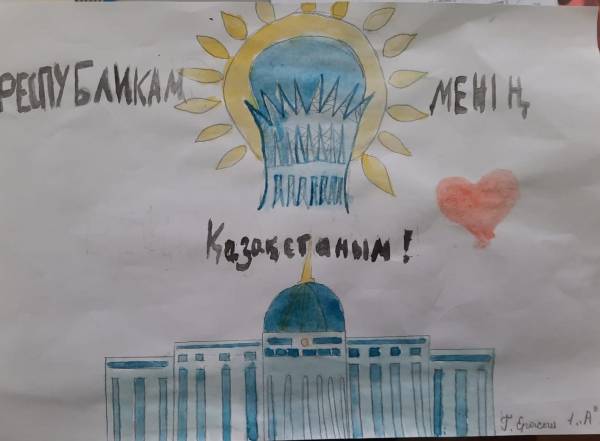 РЕСПУБЛИКАМ МЕНІҢ
Қазақстаным!
1 „А"